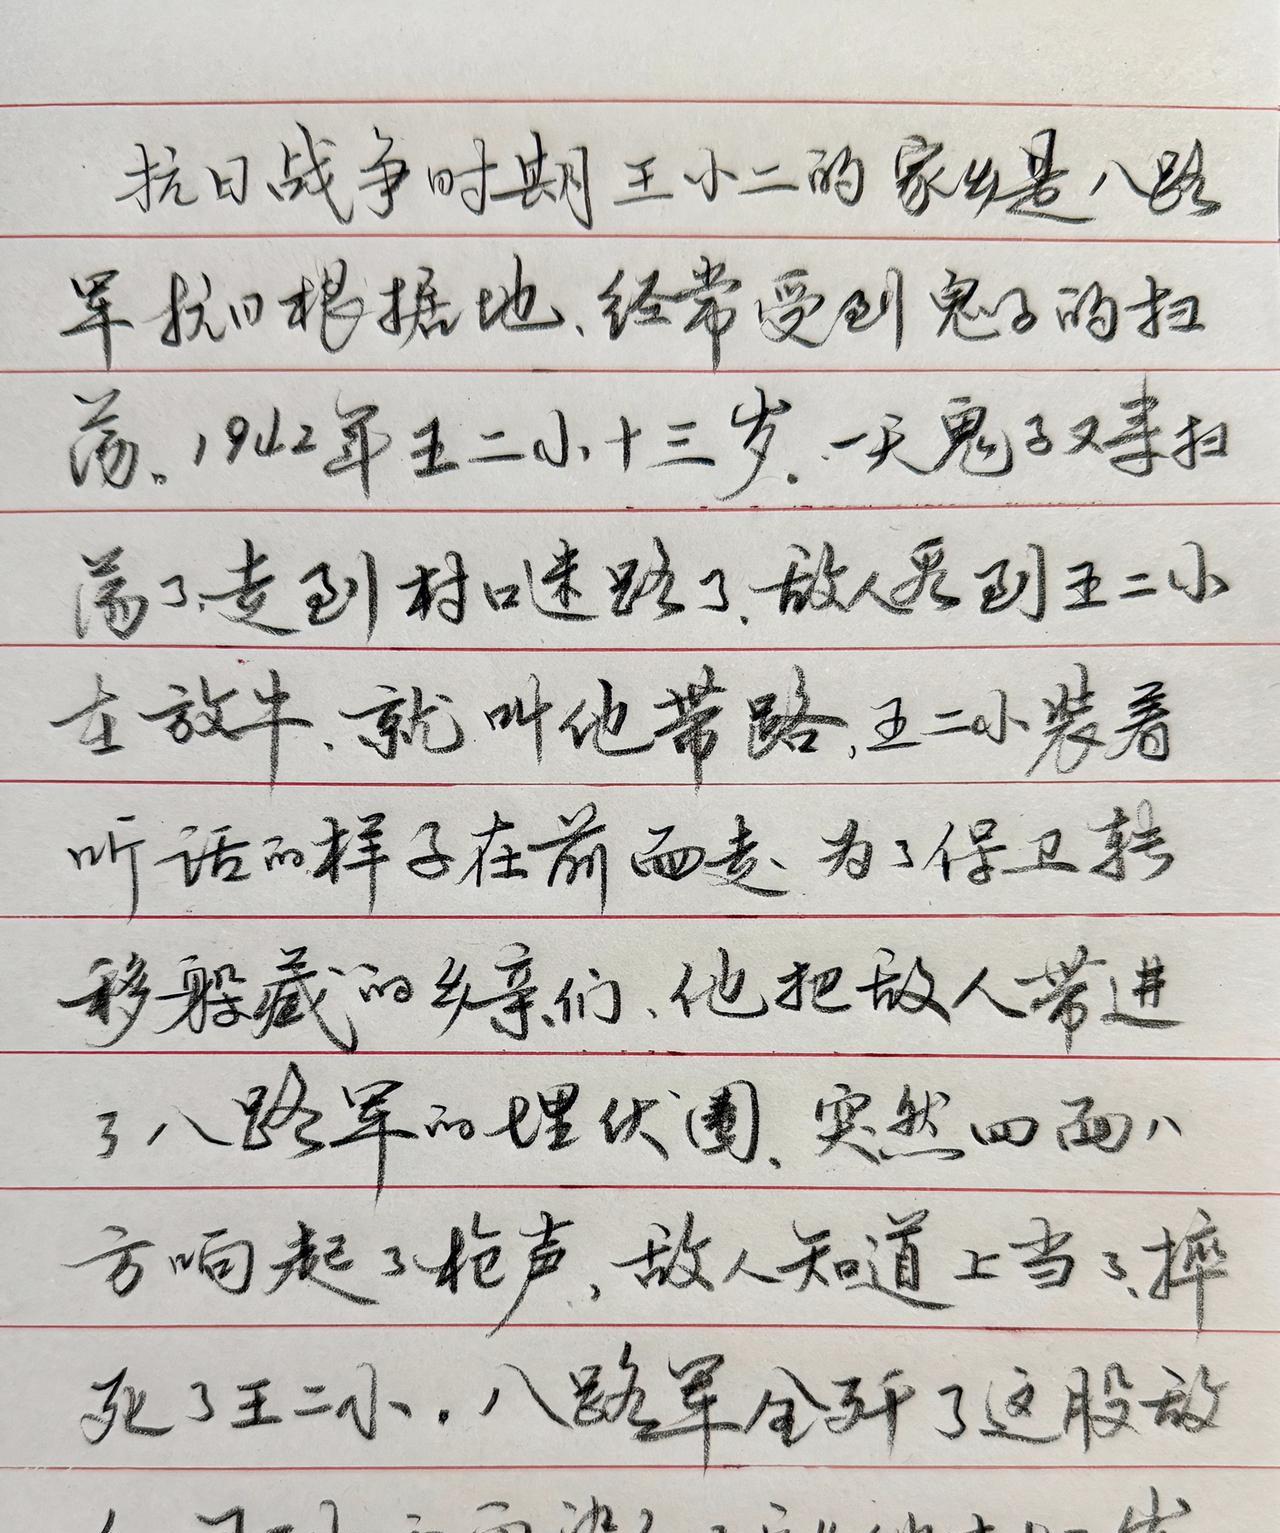 抗日战争时期王小二的家乡是八路
军抗日根据地、经常受到鬼子的扫
荡。1942年王二小十三岁.一天鬼子又来扫
荡了、走到村口迷路了、敌人看到王二小
在放牛、就叫他带路、王二小装着
听话的样子在前面走、为了保卫转
移躲藏的乡亲们、他把敌人带进
了八路军的埋伏圈、突然四面八
方响起了枪声、敌人知道上当了、摔
死了王二小.八路军全歼了这股敌